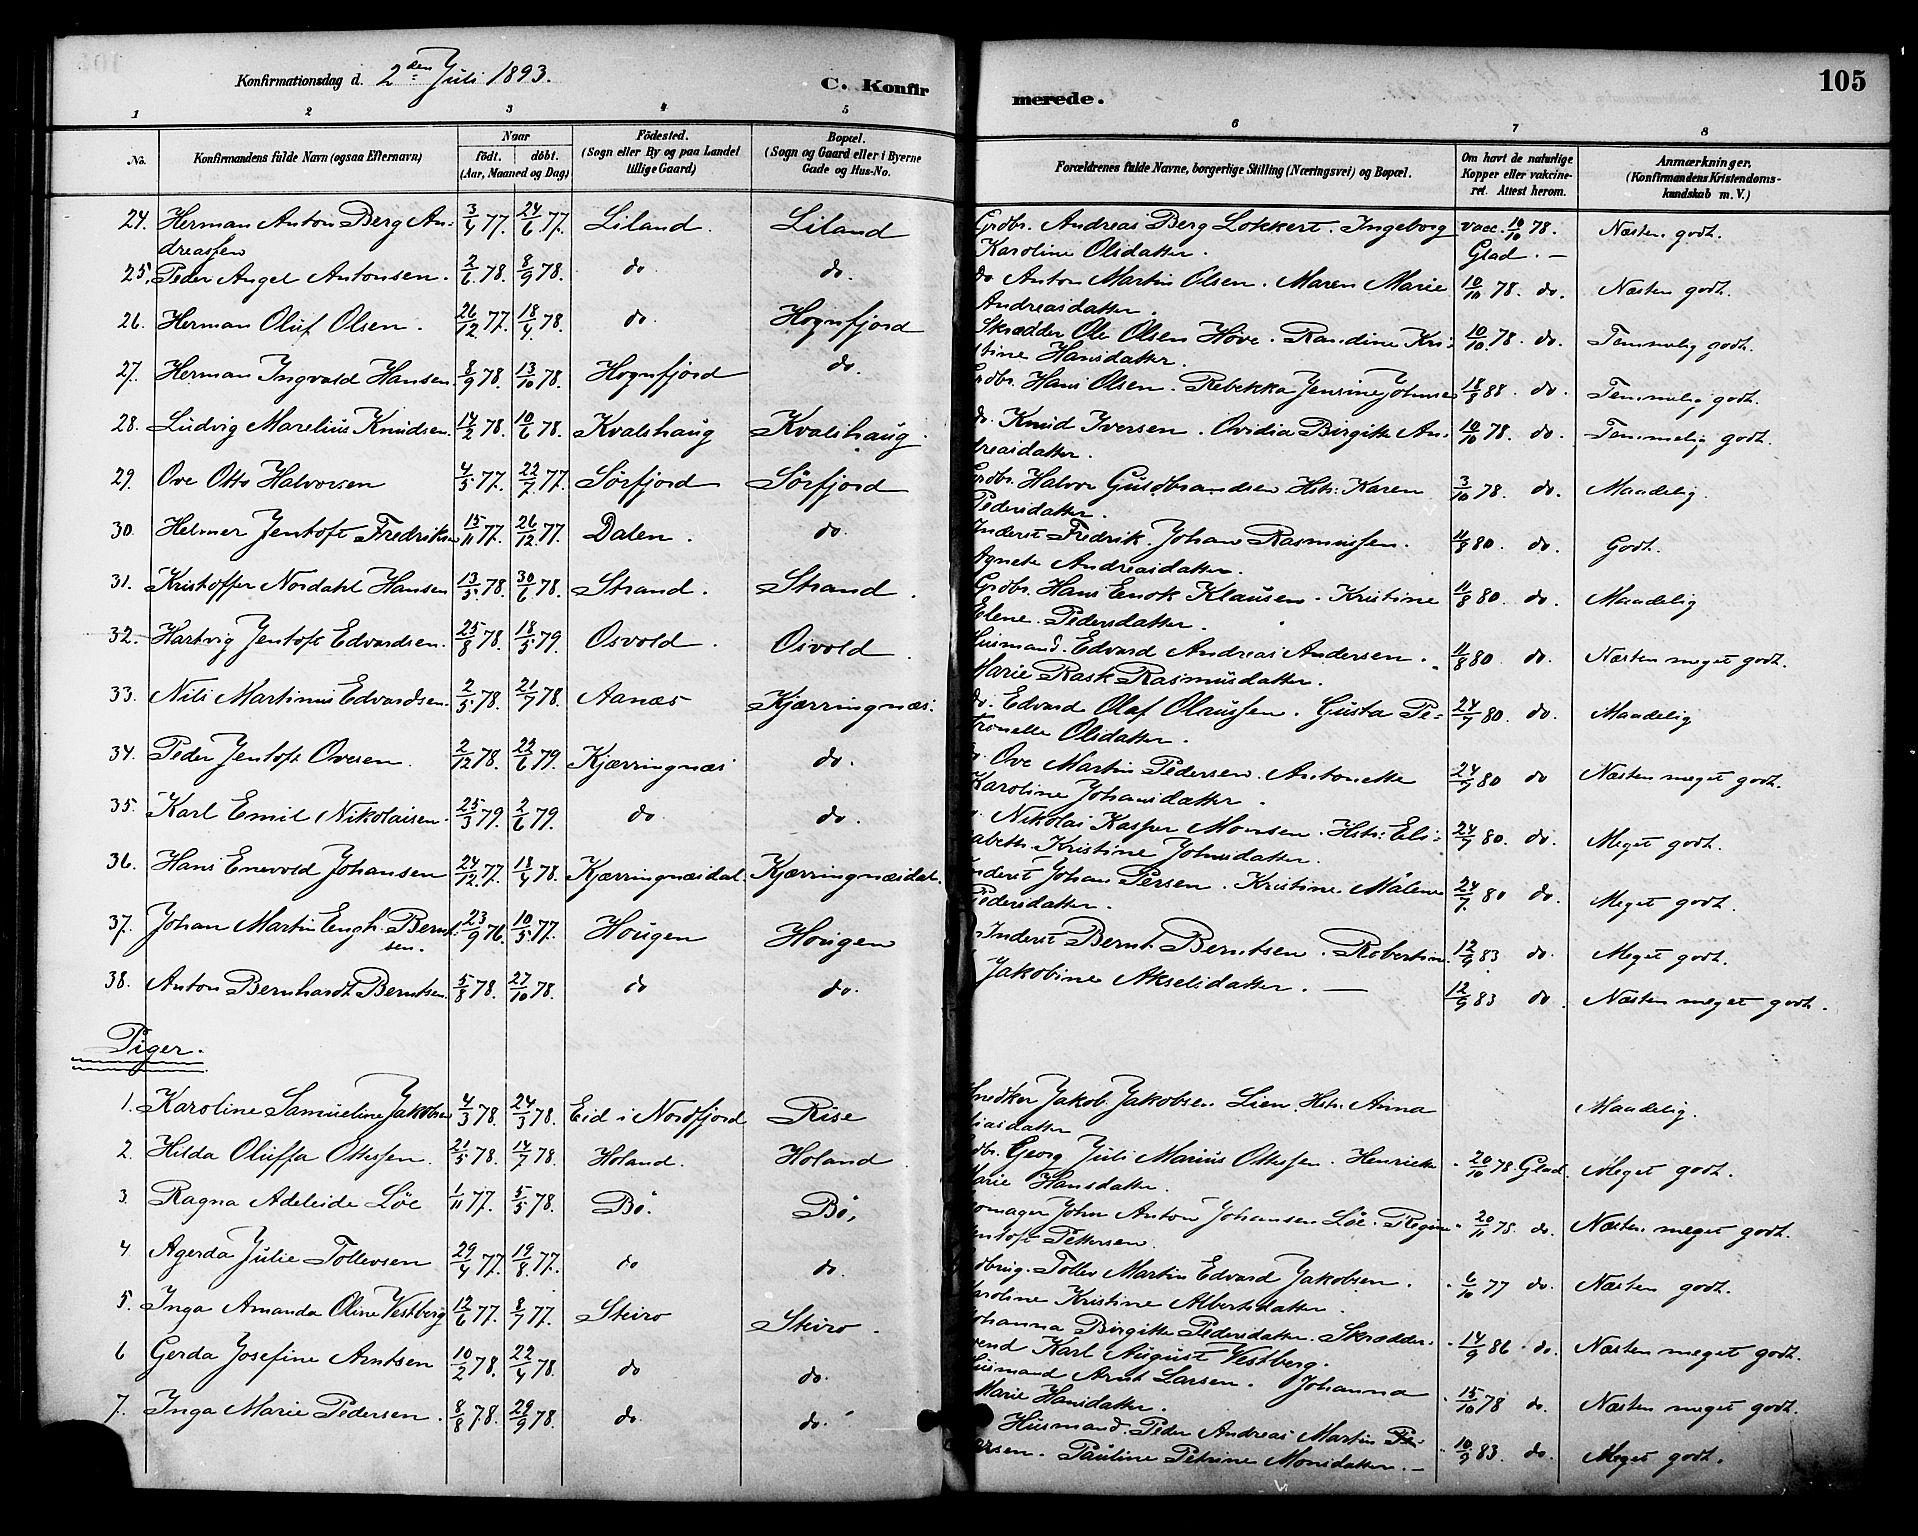 Konfirmationsdag d. 2den Juli 1893.
C. Konfirmerede.
105
1 2 3 4 5 6 7 8
No.
Konfirmandens fulde Navn (ogsaa Efternavn)
Naar
födt. döbt.
(Aar, Maaned og Dag)
Födested.
(Sogn eller By og paa Landet
tillige Gaard)
Bopæl.
(Sogn og Gaard eller i Byerne
Gade og Hus-No.
Forældrenes fulde Navne, borgerlige Stilling (Næringsvei) og Bopæl.
Om havt de naturlige
Kopper eller vakcine-
ret. Attest herom.
Anmærkninger.
(Konfirmandens Kristendoms-
kundskab m. V.)
24. Herman Anton Berg An- 3/4 77. 24/6 77. Liland. Liland Grdbr. Andreas Berg Lokkert. Ingeborg vacc. 10/10 78. Næsten godt.
dreassen Karoline Olsdatter. Glad. —
25. Peder Angel Antonsen. 2/6 78. 8/9 78. do do. do Anton Martin Olsen. Maren Marie 10/10 78. do. Næsten godt.
Andreasdatter.
26. Herman Oluf Olsen. 26/12 77. 18/4 78. do. Hognfjord Skrædder Ole Olsen Hove. Randine Kri-
stine Hansdatter. 10/10 78. do. Temmelig godt.
27. Herman Ingvald Hansen. 8/9 78. 13/10 78. Hognfjord do. Grdbr. Hans Olsen. Rebekka Jensine Johnsen 18/8 88. do. Temmelig godt.
28. Ludvig Marelius Knudsen. 14/2 78. 10/6 78. Kvalshaug Kvalshaug. do. Knud Iversen. Ovidia Birgitte An- 10/10 78. do. Temmelig godt.
dreasdatter.
29. Ove Otto Halvorsen 4/5 77. 22/7 77. Sørfjord Sørfjord Grdbr. Halvor Guldbrandsen Hstr. Karen 3/10 78. do. Maadelig.
Pedersdatter.
30. Helmer Jentoft Fredriksen 15/11 77. 26/12 77. Dalen. do. Inderst Fredrik Johan Rasmussen. 11/8 80. do. Godt.
Agnete Andreasdatter.
31. Kristoffer Nordahl Hansen 13/5 78. 30/6 78. Strand. Strand. Grdbr. Hans Enok Klausen. Kristine 11/8 80. do. Maadelig
Elene Pedersdatter.
32. Hartvig Jentoft Edvardsen. 25/8 78. 18/5 79. Osvold. Osvold. Husmand. Edvard Andreas Andersen. 11/8 80 do. Næsten meget godt.
Marie Rask Rasmusdatter.
33. Nils Martinus Edvardsen. 2/5 78. 21/7 78. Aanæs Kjærringnæs. do. Edvard Olaf Olaussen. Gusta Pe- 24/7 80. do. Maadelig
tronelle Olsdatter.
34. Peder Jentoft Ovesen. 2/12 78. 22/6 79. Kjærringnæs do. Ove Martin Pedersen. Antonette 24/7 80 do Næsten meget godt.
Karoline Johansdatter.
35. Karl Emil Nikolaisen. 25/3 79. 2/6 79. do do. Nikolai Kasper Monsen. Hstr. Elisabeth Kristine Johnsdatter. 24/7 80. do. Meget godt.
36. Hans Enevold Johansen 24/12 77. 18/4 78. Kjærringnæsdal. Kjærringnæsdal. Inderst Johan Persen. Kristine Målene 24/7 80 do. Meget godt.
Pedersdatter.
37. Johan Martin Engh. Bernt- 23/9 76. 10/5 77. Hougen Hougen Inderst Bernt Berntsen. Robertine 12/9 83 do. Meget godt.
sen.
38. Anton Bernhardt Berntsen. 5/8 78. 27/10 78. do do. Jakobine Akselsdatter. — 12/9 83 do. Næsten meget godt.
Piger.
1. Karoline Samueline Jakobsen 4/3 78. 24/3 78. Eid i Nordfjord Rise Snedker Jakob Jakobsen Lien. Hstr. Anna Maadelig.
2. Hilda Oluffa Ottesen. 21/5 78. 14/7 78. Holand. Holand. Georg Juli Marius Ottesen. Henriette 20/10 78. Glad Meget godt.
Marie Hansdatter.
3 Ragna Adeleide Löe 1/11 77. 5/5 78. Bö. Bö, John Anton Johansen Löe. Regine 20/10 78. do. Næsten meget godt.
Jentoft Pettersen.
4 Agerda Julie Tollevsen 29/4 77. 19/8 77. do do. Tollev Martin Edvard Jakobsen. 6/10 77 do. Næsten godt.
Karoline Kristine Albertsdatter.
5. Inga Amanda Oline Vestberg 12/6 77. 8/7 77. Skiro Skiro. Johanna Birgitte Pedersdatter. Skrædder-
svend Karl August Vestberg. 14/9 86 do. Næsten meget godt.
6 Gerda Josefine Arntsen 10/2 78. 22/4 78. do do. Husmand Arnt Larsen. Johanna 15/10 78 do. Næsten meget godt.
Marie Hansdatter.
7. Inga Marie Pedersen. 8/8 78. 29/9 78. do. do. Husmand. Peder Andreas Martin
Larsen. Pauline Petrine Monsdatter. — 10/9 83 do. Meget godt.